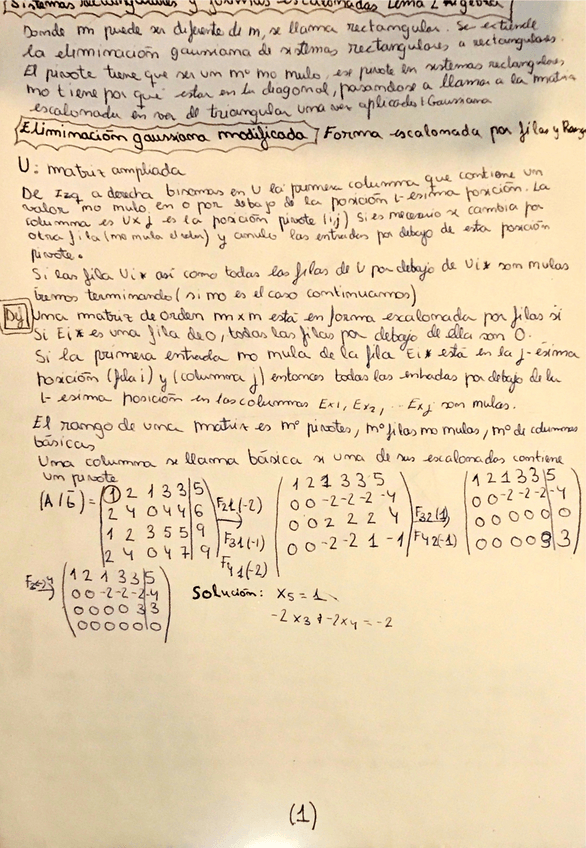 Sistemas rectangulares y formas escalonadas Tema 2 Algebra
Donde m puede ser diferente de n, se llama rectangular. Se extiende
la eliminación gaussiana de sistemas rectangulares a rectangulares.
El pivote tiene que ser un nº no nulo, ese pivote en sistemas rectangulares
no tiene por qué estar en la diagonal, pasandose a llamar a la matriz
escalonada en vez de triangular una vez aplicada Gaussiana
Eliminación gaussiana modificada / Forma escalonada por filas y Rango
U: matriz ampliada
De Izq a derecha buscamos en U la primera columna que contiene un
valor no nulo, en o por debajo de la posición i-esima posición. La
columna es U*j es la posición pivote (i,j) Si es necesario se cambia por
otra fila (no nula el valor) y anulo las entradas por debajo de esta posición
pivote.
Si las fila Ui* así como todas las filas de U por debajo de Ui* son nulas
hemos terminando (si no es el caso continuamos)
Df Una matriz de orden m x n está en forma escalonada por filas si
Si Ei* es una fila de 0, todas las filas por debajo de ella son 0.
Si la primera entrada no nula de la fila Ei* está en la j-ésima
posición (fila i) y (columna j) entonces todas las entradas por debajo de la
i-esima posición en las columnas E*1, E*2, ... E*j son nulas.
El rango de una matriz es nº pivotes, nº filas no nulas, nº de columnas
básicas
Una columna se llama básica si una de sus escalonadas contiene
un pivote
(A|b) = 1 2 1 3 3 | 5 F21(-2) 1 2 1 3 3 5 F32(1) 1 2 1 3 3 | 5
2 4 0 4 4 | 6 F31(-1) 0 0 -2 -2 -2 -4 F42(-1) 0 0 -2 -2 -2 | -4
1 2 3 5 5 | 9 F41(-2) 0 0 2 2 2 4 0 0 0 0 0 | 0
2 4 0 4 7 | 9 0 0 -2 -2 1 -1 0 0 0 0 3 | 3
1 2 1 3 3 | 5 Solución: x5 = 1
0 0 -2 -2 -2 | -4 -2x3 + -2x4 = -2
0 0 0 0 3 | 3
0 0 0 0 0 | 0
(1)